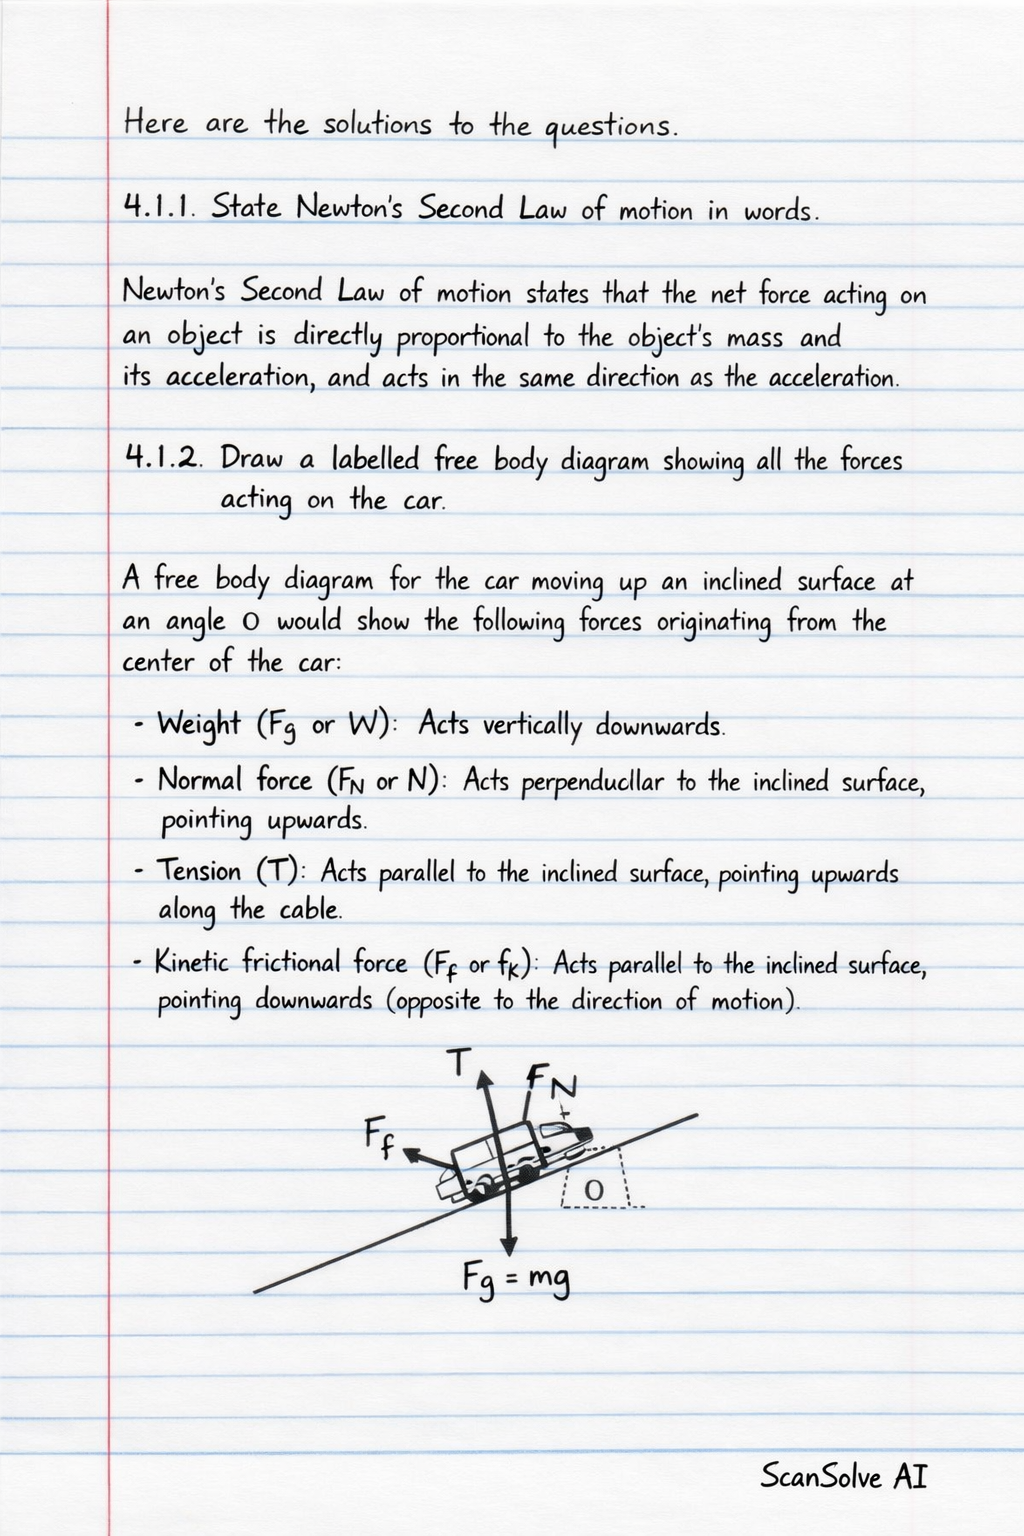 Here are the solutions to the questions.
4.1.1. State Newton's Second Law of motion in words.
Newton's Second Law of motion states that the net force acting on
an object is directly proportional to the object's mass and
its acceleration, and acts in the same direction as the acceleration.
4.1.2. Draw a labelled free body diagram showing all the forces
acting on the car.
A free body diagram for the car moving up an inclined surface at
an angle O would show the following forces originating from the
center of the car:
- Weight (Fg or W): Acts vertically downwards.
- Normal force (FN or N): Acts perpenducllar to the inclined surface,
pointing upwards.
- Tension (T): Acts parallel to the inclined surface, pointing upwards
along the cable.
- Kinetic frictional force (Ff or fK): Acts parallel to the inclined surface,
pointing downwards (opposite to the direction of motion).
T
FN
Ff
O
Fg = mg
ScanSolve AI